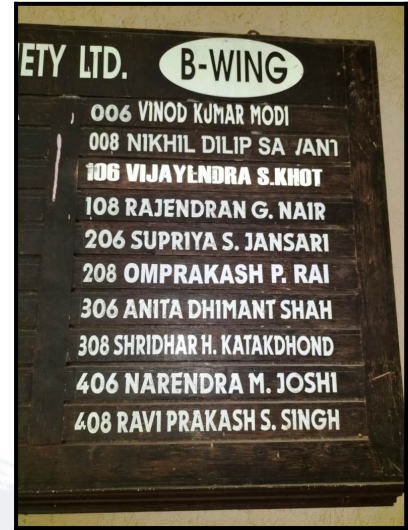 ETY LTD. B-WING
006 VINOD KUMAR MODI
008 NIKHIL DILIP
106 VIJAYENDRA S.KHOT
108 RAJENDRAN G. NAIR
206 SUPRIYA S. JANSARI
208 OMPRAKASH P. RAI
306 ANITA DHIMANT SHAH
308 SHRIDHAR H. KATAKDHOND
406 NARENDRA M. JOSHI
408 RAVI PRAKASH S. SINGH